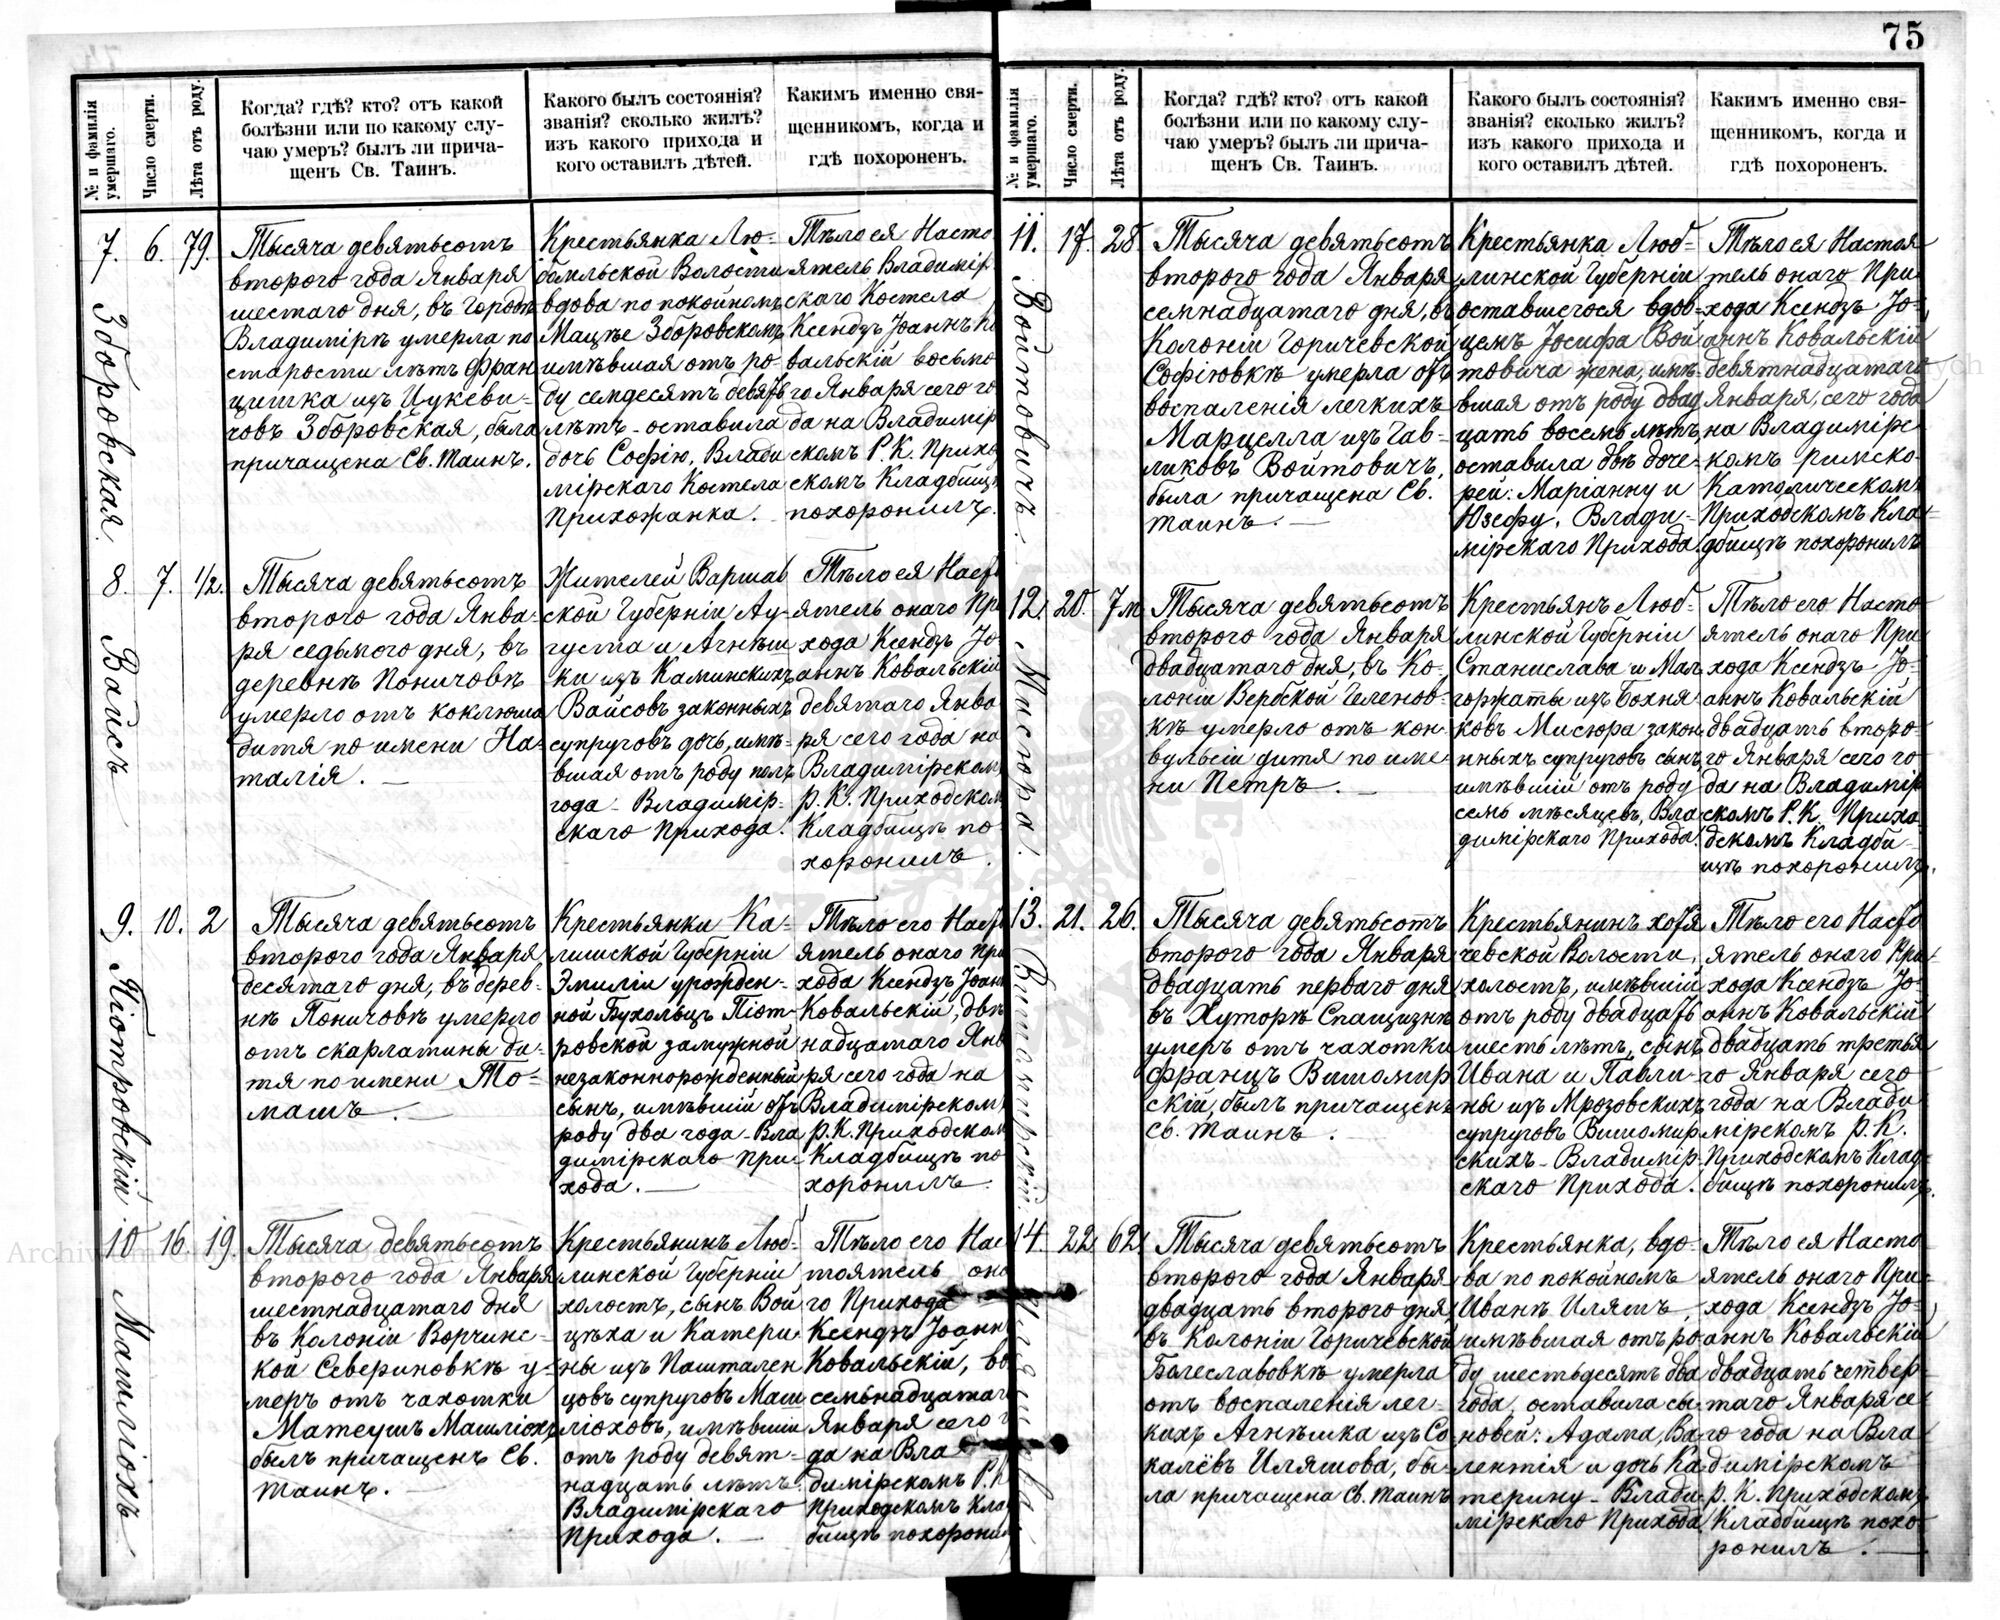 75
№ и фамилія умершаго.
Число смерти.
Лѣта отъ роду.
Когда? гдѣ? кто? отъ какой
болѣзни или по какому слу-
чаю умеръ? былъ ли прича-
щенъ Св. Таинъ.
Какого былъ состоянія?
званія? сколько жилъ?
изъ какого прихода и
кого оставилъ дѣтей.
Какимъ именно свя-
щенникомъ, когда и
гдѣ похороненъ.
7. Зборовская
6.
79.
Тысяча девятьсотъ
второго года Января
шестаго дня, въ городѣ
Владимірѣ умерла по
старости лѣтъ Фран
цишка изъ Цукеви-
човъ Зборовская, была
причащена Св. Таинъ.
Крестьянка Лю-
бомльской Волости
вдова по покойномъ
Мацѣе Зборовскомъ
имѣвшая отъ ро-
ду семдесятъ девять
лѣтъ - оставила
дочь Софію, Влади
мірскаго Костела
Прихожанка.
Тѣло ея Насто
ятель Владимір-
скаго Костела
Ксендзъ Іоаннъ Ко
вальскій восьмо
го Января сего го
да на Владимір
скомъ Р. К. Прихо
скомъ Кладбищѣ
похоронилъ.
8. Вайсъ
7.
1/2.
Тысяча девятьсотъ
второго года Янва-
ря седьмого дня, въ
деревнѣ Поничовѣ
умерло отъ коклюша
дитя по имени На-
талія.
Жителей Варшав
ской Губерніи Ав-
густа и Агнѣш
ки изъ Каминскихъ
Вайсовъ законныхъ
супруговъ дочь, имѣ-
вшая отъ роду полъ
года - Владимір-
скаго Прихода.
Тѣло ея Насто
ятель онаго При
хода Ксендзъ Іо
аннъ Ковальскій
девятаго Янва
ря сего года на
Владимірском
Р. К. Приходском
Кладбищѣ по-
хоронилъ.
9. Піотровскій
10.
2
Тысяча девятьсотъ
второго года Января
десятаго дня, въ дерев-
нѣ Поничовѣ умерло
отъ скарлатины ди-
тя по имени То-
машъ.
Крестьянки Ка-
лишской Губерніи
Эмиліи урожден-
ной Бухольцъ Піот-
ровской замужной
незаконнорожденный
сынъ, имѣвшій отъ
роду два года - Вла
димірскаго При-
хода.
Тѣло его Насто
ятель онаго При
хода Ксендзъ Іоанн
Ковальскій, двѣ
надцатаго Янв
ря сего года на
Владимірском
Р. К. Приходском
Кладбищѣ по
хоронилъ.
10 Машліохъ
16.
19.
Тысяча девятьсотъ
второго года Января
шестнадцатаго дня
въ Колоніи Ворчинс-
кой Севериновкѣ у-
меръ отъ чахотки
Матеушъ Машліохъ
былъ причащенъ Св.
Таинъ.
Крестьянинъ Люб-
линской Губерніи
холостъ, сынъ Вой
цѣха и Катери-
ны изъ Паштален
цовъ супруговъ Маш
ліоховъ, имѣвшій
отъ роду девят-
надцать лѣтъ.
Владимірскаго
Прихода.
Тѣло его Нас
тоятель она
го Прихода
Ксендзъ Іоанн
Ковальскій, во
семьнадцатаг
Января сего г
да на Вла
димірскомъ Р. К
Приходскомъ Кла
бищѣ похорони
№ и фамилія умершаго.
Число смерти.
Лѣта отъ роду.
Когда? гдѣ? кто? отъ какой
болѣзни или по какому слу-
чаю умеръ? былъ ли прича-
щенъ Св. Таинъ.
Какого былъ состоянія?
званія? сколько жилъ?
изъ какого прихода и
кого оставилъ дѣтей.
Какимъ именно свя-
щенникомъ, когда и
гдѣ похороненъ.
11. Войтовичъ.
17.
28.
Тысяча девятьсотъ
второго года Января
семнадцатаго дня, въ
Колоніи Горичевской
Софіювкѣ умерла отъ
воспаленія легкихъ
Марцелла изъ Гав-
ликовъ Войтовичъ,
была причащена Св.
Таинъ.
Крестьянка Люб-
линской Губерніи
оставшегося вдов-
цемъ Іосифа Вой
товича жена, имѣ-
вшая отъ роду двад
цать восемь лѣтъ
оставила двѣ доче-
рей: Маріанну и
Юзефу, Влади-
мірскаго Прихода.
Тѣло ея Настоя
тель онаго При
хода Ксендзъ Іо-
аннъ Ковальскій
девятнадцатаго
Января, сего года
на Владимірс
комъ римско-
Католическомъ
Приходскомъ Кла-
дбищѣ похоронилъ
12. Мисюра.
20.
7м
Тысяча девятьсотъ
второго года Января
двадцатаго дня, въ Ко-
лоніи Вербской Геленов-
кѣ умерло отъ кон-
вульсіи дитя по име-
ни Петръ.
Крестьянъ Люб-
линской Губерніи
Станислава и Мал
горжаты изъ Бохня
ковъ Мисюра закон
нныхъ супруговъ сынъ
имѣвшій отъ роду
семь мѣсяцевъ, Вла
димірскаго Прихода.
Тѣло его Насто
ятель онаго При
хода Ксендзъ Іо-
аннъ Ковальскій
двадцать второ-
го Января сего го
да на Владимір
скомъ Р. К. Прихо-
дскомъ Кладби-
щѣ похоронилъ.
13. Витомирскій
21.
26.
Тысяча девятьсотъ
второго года Января
двадцать перваго дня
въ Хуторѣ Спащизнѣ
умеръ отъ чахотки
Францъ Витомир
скій, былъ причащенъ
Св. Таинъ.
Крестьянинъ Хотя
чевской Волости,
холостъ, имѣвшій
отъ роду двадцать
шесть лѣтъ, сынъ
Ивана и Павли-
ны изъ Мрозовскихъ
супруговъ Витомир
скихъ - Владимір-
скаго Прихода.
Тѣло его Насто
ятель онаго При
хода Ксендзъ Іо-
аннъ Ковальскій
двадцать третья
го Января сего
года на Влади
мірскомъ Р. К.
Приходскомъ Клад-
бищѣ похоронилъ.
14. Иляшова
22
62
Тысяча девятьсотъ
второго года Января
двадцать второго дня,
въ Колоніи Горичевской
Болеславовкѣ умерла
отъ воспаленія лег-
кихъ Агнѣшка изъ Со
калёвъ Иляшова, бы-
ла причащена Св. Таинъ
Крестьянка, вдо-
ва по покойномъ
Иванѣ Иляшъ,
имѣвшая отъ ро
ду шестьдесятъ два
года, оставила сы-
новей: Адама, Ва
лентія и дочь Ка
терину - Влади-
мірскаго Прихода
Тѣло ея Насто
ятель онаго При-
хода Ксендзъ Іо-
аннъ Ковальскій
двадцать четвер-
таго Января се-
го года на Вла
димірскомъ
Р. К. Приходскомъ
Кладбищѣ похо-
ронилъ.